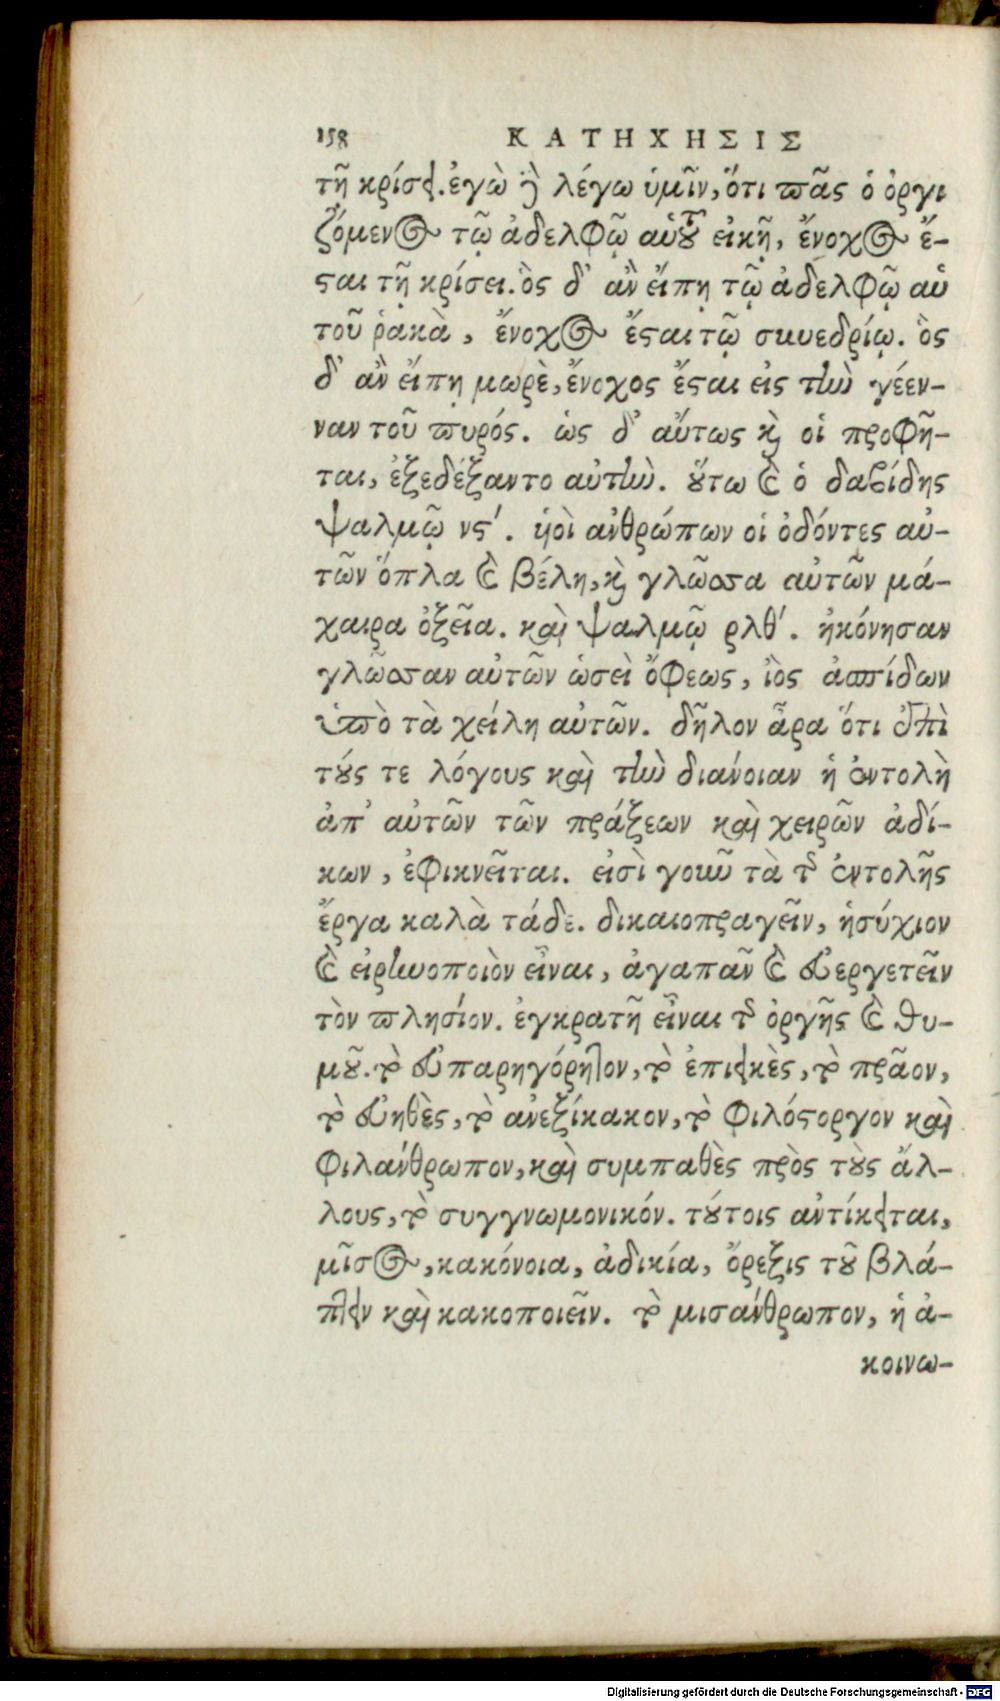 158 ΚΑΤΗΧΗΣΙΣ
τῇ κρίσει. ἐγὼ δὲ λέγω ὑμῖν, ὅτι πᾶς ὁ ὀργι
ζόμενος τῷ ἀδελφῷ αὐτοῦ εἰκῇ, ἔνοχος ἔ-
ϛαι τῇ κρίσει. ὃς δ' ἂν εἴπῃ τῷ ἀδελφῷ αὐ
τοῦ ῥακὰ, ἔνοχος ἔϛαι τῷ συνεδρίῳ. ὃς
δ' ἂν εἴπῃ μωρὲ, ἔνοχος ἔϛαι εἰς τὴν γέεν-
ναν τοῦ πυρός. ὡς δ' αὔτως καὶ οἱ προφῆ-
ται, ἐξεδέξαντο αὐτήν. οὕτω καὶ ὁ δαβίδης
ψαλμῷ νϛ′. υἱοὶ ἀνθρώπων οἱ ὀδόντες αὐ-
τῶν ὅπλα καὶ βέλη, καὶ γλῶσσα αὐτῶν μά-
χαιρα ὀξεῖα. καὶ ψαλμῷ ρλθ′. ἠκόνησαν
γλῶσσαν αὐτῶν ὡσεὶ ὄφεως, ἰὸς ἀσπίδων
ὑπὸ τὰ χείλη αὐτῶν. δῆλον ἆρα ὅτι ἐπὶ
τούς τε λόγους καὶ τὴν διάνοιαν ἡ ἐντολὴ
ἀπ' αὐτῶν τῶν πράξεων καὶ χειρῶν ἀδί-
κων, ἐφικνεῖται. εἰσὶ γοῦν τὰ τῆς ἐντολῆς
ἔργα καλὰ τάδε. δικαιοπραγεῖν, ἡσύχιον
καὶ εἰρηνοποιὸν εἶναι, ἀγαπᾶν καὶ εὐεργετεῖν
τὸν πλησίον. ἐγκρατῆ εἶναι τῆς ὀργῆς καὶ θυ-
μοῦ. τὸ εὐπαρηγόρητον, τὸ ἐπιεικὲς, τὸ πρᾶον,
τὸ εὐηθὲς, τὸ ἀνεξίκακον, τὸ φιλόϛοργον καὶ
φιλάνθρωπον, καὶ συμπαθὲς πρὸς τοὺς ἄλ-
λους, τὸ συγγνωμονικόν. τούτοις ἀντίκειται,
μῖσος, κακόνοια, ἀδικία, ὄρεξις τοῦ βλά-
πτειν καὶ κακοποιεῖν. τὸ μισάνθρωπον, ἡ ἀ-
κοινω-
Digitalisierung gefördert durch die Deutsche Forschungsgemeinschaft - DFG